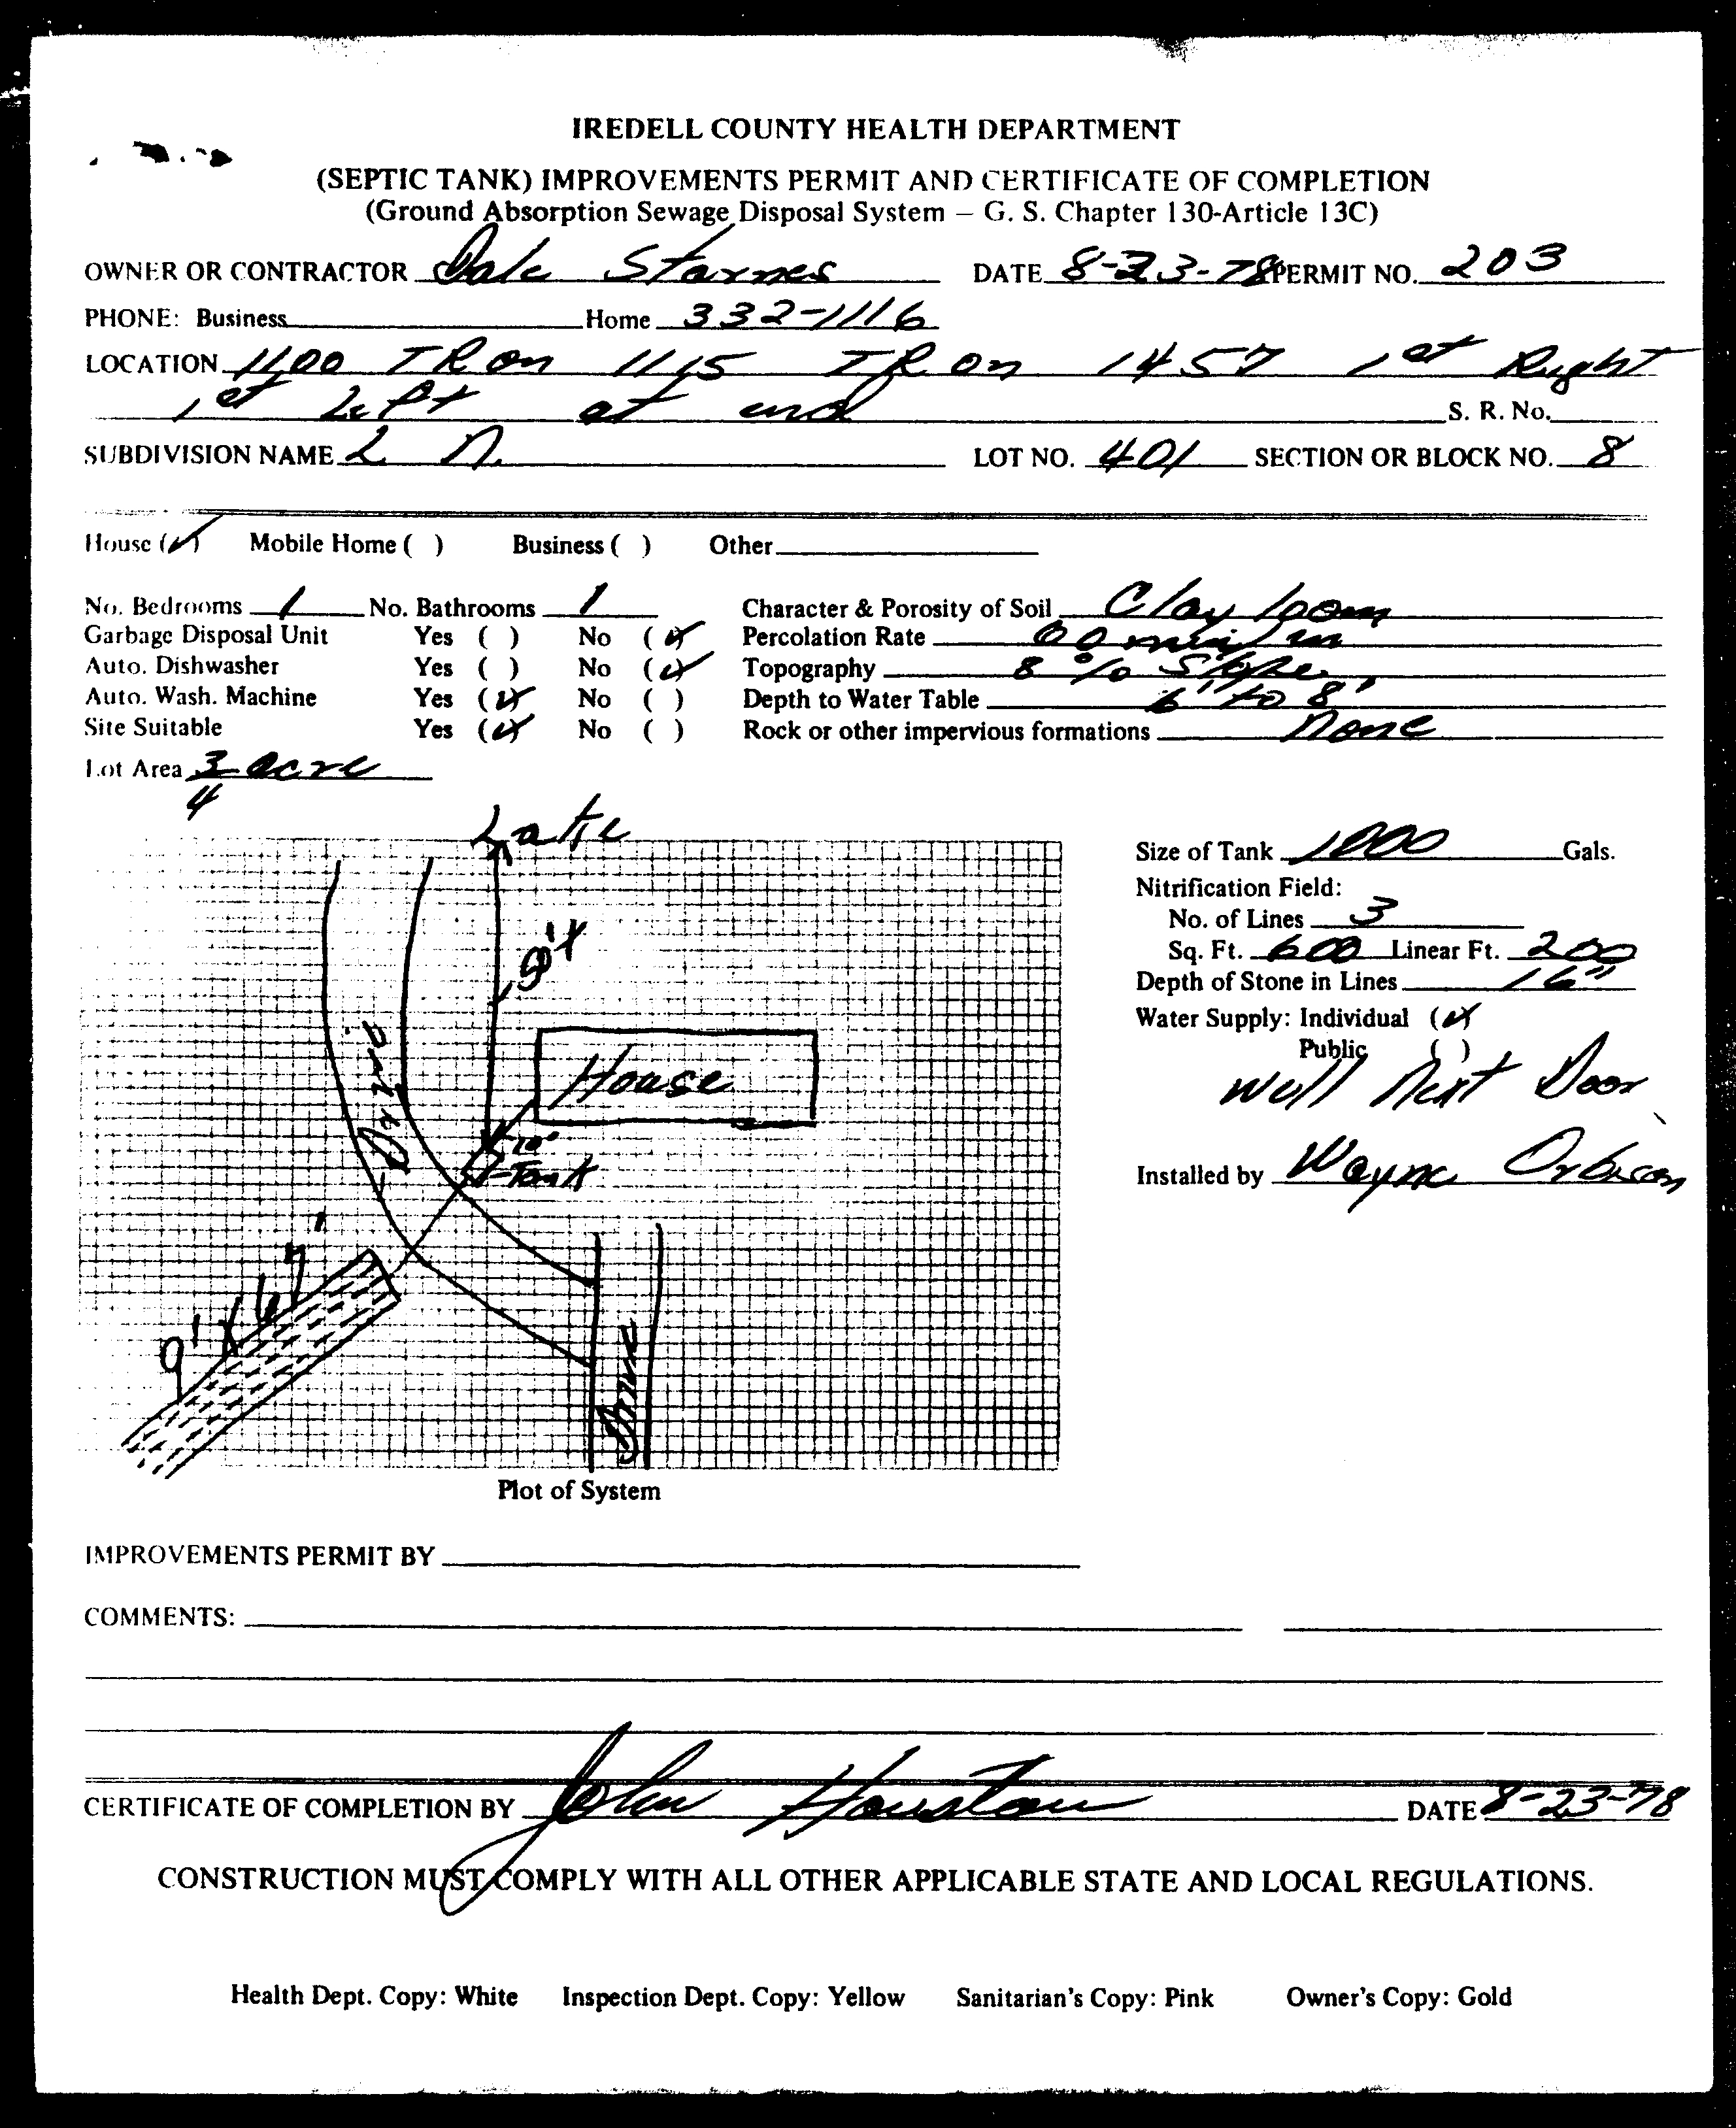 IREDELL COUNTY HEALTH DEPARTMENT
(SEPTIC TANK) IMPROVEMENTS PERMIT AND CERTIFICATE OF COMPLETION
(Ground Absorption Sewage Disposal System — G. S. Chapter 130-Article 13C)
OWNER OR CONTRACTOR Dale Starnes DATE 8-23-78 PERMIT NO. 203
PHONE: Business Home 332-1116
LOCATION 1100 TR on 1115 TR on 1457 1st Right
1st Left at end S. R. No.
SUBDIVISION NAME L N. LOT NO. 401 SECTION OR BLOCK NO. 8
House (✓) Mobile Home ( ) Business ( ) Other
No. Bedrooms 1 No. Bathrooms 1 Character & Porosity of Soil Clay loam
Garbage Disposal Unit Yes ( ) No (✓) Percolation Rate min/in
Auto. Dishwasher Yes ( ) No (✓) Topography 8 % Slope
Auto. Wash. Machine Yes (✓) No ( ) Depth to Water Table 6' to 8'
Site Suitable Yes (✓) No ( ) Rock or other impervious formations None
Lot Area 3/4 acre
Lake
Size of Tank 1000 Gals.
Nitrification Field:
No. of Lines 3
Sq. Ft. 600 Linear Ft. 200
Depth of Stone in Lines 16"
Water Supply: Individual (✓)
Public ( )
Well Next Door
House
Drive
10'
Tank
Installed by Wayne Orbison
9' X 67'
Drive
Plot of System
IMPROVEMENTS PERMIT BY
COMMENTS:
CERTIFICATE OF COMPLETION BY John Houston DATE 8-23-78
CONSTRUCTION MUST COMPLY WITH ALL OTHER APPLICABLE STATE AND LOCAL REGULATIONS.
Health Dept. Copy: White Inspection Dept. Copy: Yellow Sanitarian's Copy: Pink Owner's Copy: Gold